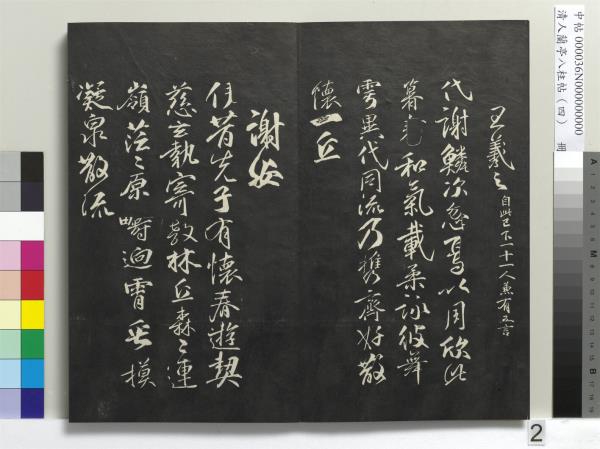 中帖 000036N000000000
清人蘭亭八柱帖（四） 冊
王羲之 自此已下十一人兼有五言
代謝鱗次忽焉以周欣此
暮春和氣載柔詠彼舞
雩異代同流乃攜齊好散
懷一丘
謝安
伊昔先子有懷春遊契
茲言執寄敖林丘森々連
嶺茫々原疇迥霄垂
凝泉散流
A
B
2